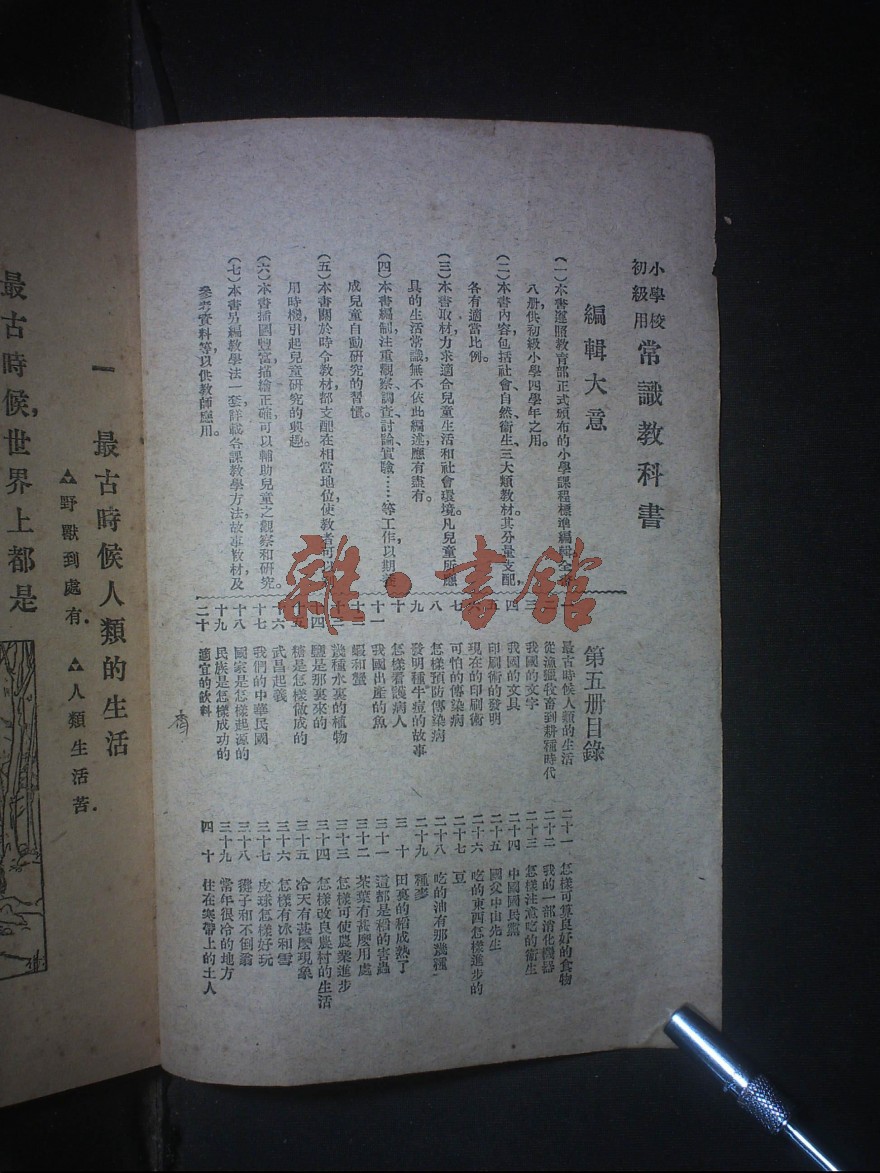 小學校
初級用
常識教科書
編輯大意
(一)本書遵照教育部正式頒布的小學課程標準編輯全書
八册供初級小學四學年之用。
(二)本書內容包括社會、自然、衞生、三大類教材其分量支配,
各有適當比例。
(三)本書取材力求適合兒童生活和社會環境凡兒童所應
具的生活常識無不依此編述應有盡有。
(四)本書編制注重觀察、調查、討論、實驗……等工作,以期養
成兒童自動研究的習慣。
(五)本書關於時令教材都支配在相當地位,使教者可以利
用時機,引起兒童研究的興趣。
(六)本書插圖豐富描繪正確可以輔助兒童之觀察和研究。
(七)本書另編教學法一套詳載各課教學方法故事教材及
參考資料等以供教師應用。
第五册目錄
一 最古時候人類的生活
二 從漁獵牧畜到耕種時代
三 我國的文字
四 我國的文具
五 印刷術的發明
六 現在的印刷術
七 可怕的傳染病
八 怎樣預防傳染病
九 發明種牛痘的故事
十 怎樣看護病人
十一 我國出產的魚
十二 蝦和蟹
十三 幾種水裏的植物
十四 鹽是那裏來的
十五 糖是怎樣做成的
十六 武昌起義
十七 我們的中華民國
十八 國家是怎樣起源的
十九 民族是怎樣成功的
二十 適宜的飲料
二十一 怎樣可算良好的食物
二十二 我的一部消化機器
二十三 怎樣注意吃的衞生
二十四 中國國民黨
二十五 國父中山先生
二十六 吃的東西怎樣進步的
二十七 豆
二十八 吃的油有那幾種
二十九 種麥
三十 田裏的稻成熟了
三十一 這都是稻的害蟲
三十二 茶葉有甚麼用處
三十三 怎樣可使農業進步
三十四 怎樣改良農村的生活
三十五 冷天有甚麼現象
三十六 怎樣有冰和雪
三十七 皮球怎樣好玩
三十八 毽子和不倒翁
三十九 常年很冷的地方
四十 住在寒帶上的土人
雜·書館
一 最古時候人類的生活
▲野獸到處有.▲人類生活苦.
最古時候,世界上都是